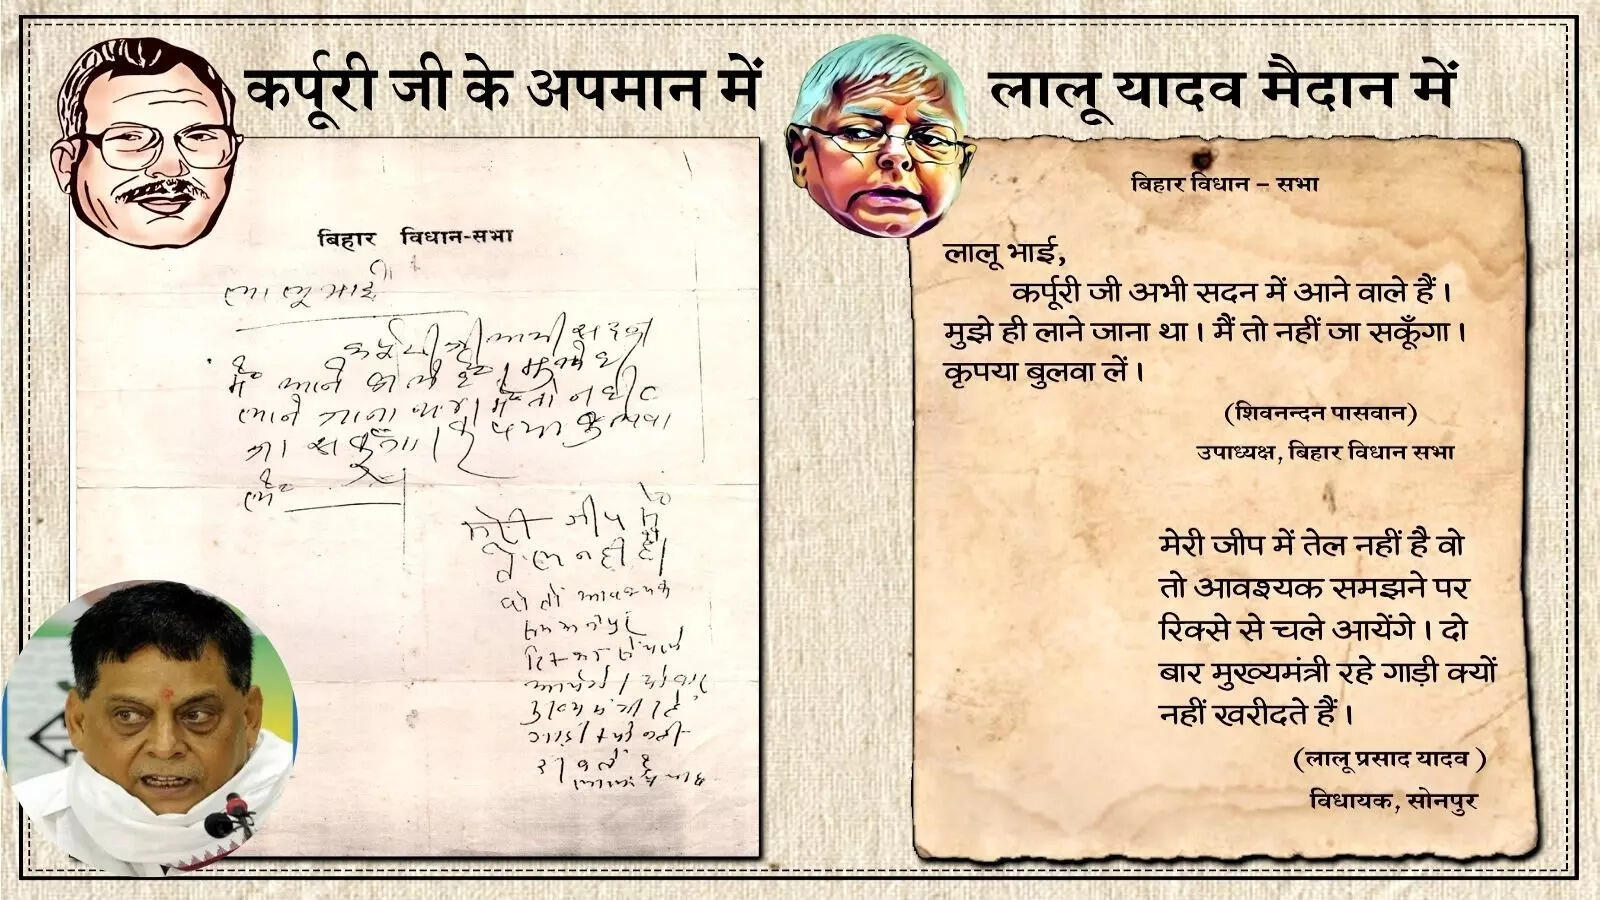 कर्पूरी जी के अपमान में
लालू यादव मैदान में
बिहार विधान-सभा
लालू भाई,
कर्पूरी जी अभी सदन
में आने वाले हैं। मुझे ही
लाने जाना था। मैं तो नहीं
जा सकूँगा। कृपया बुलवा
लें
मेरी जीप में
तेल नहीं है।
वो तो आवश्यक
समझने पर
रिक्से से चले
आयेंगे। दो बार
मुख्यमंत्री रहे
गाड़ी क्यों नहीं
बिहार विधान – सभा
लालू भाई,
कर्पूरी जी अभी सदन में आने वाले हैं।
मुझे ही लाने जाना था। मैं तो नहीं जा सकूँगा।
कृपया बुलवा लें।
(शिवनन्दन पासवान)
उपाध्यक्ष, बिहार विधान सभा
मेरी जीप में तेल नहीं है वो
तो आवश्यक समझने पर
रिक्से से चले आयेंगे। दो
बार मुख्यमंत्री रहे गाड़ी क्यों
नहीं खरीदते हैं।
(लालू प्रसाद यादव )
विधायक, सोनपुर